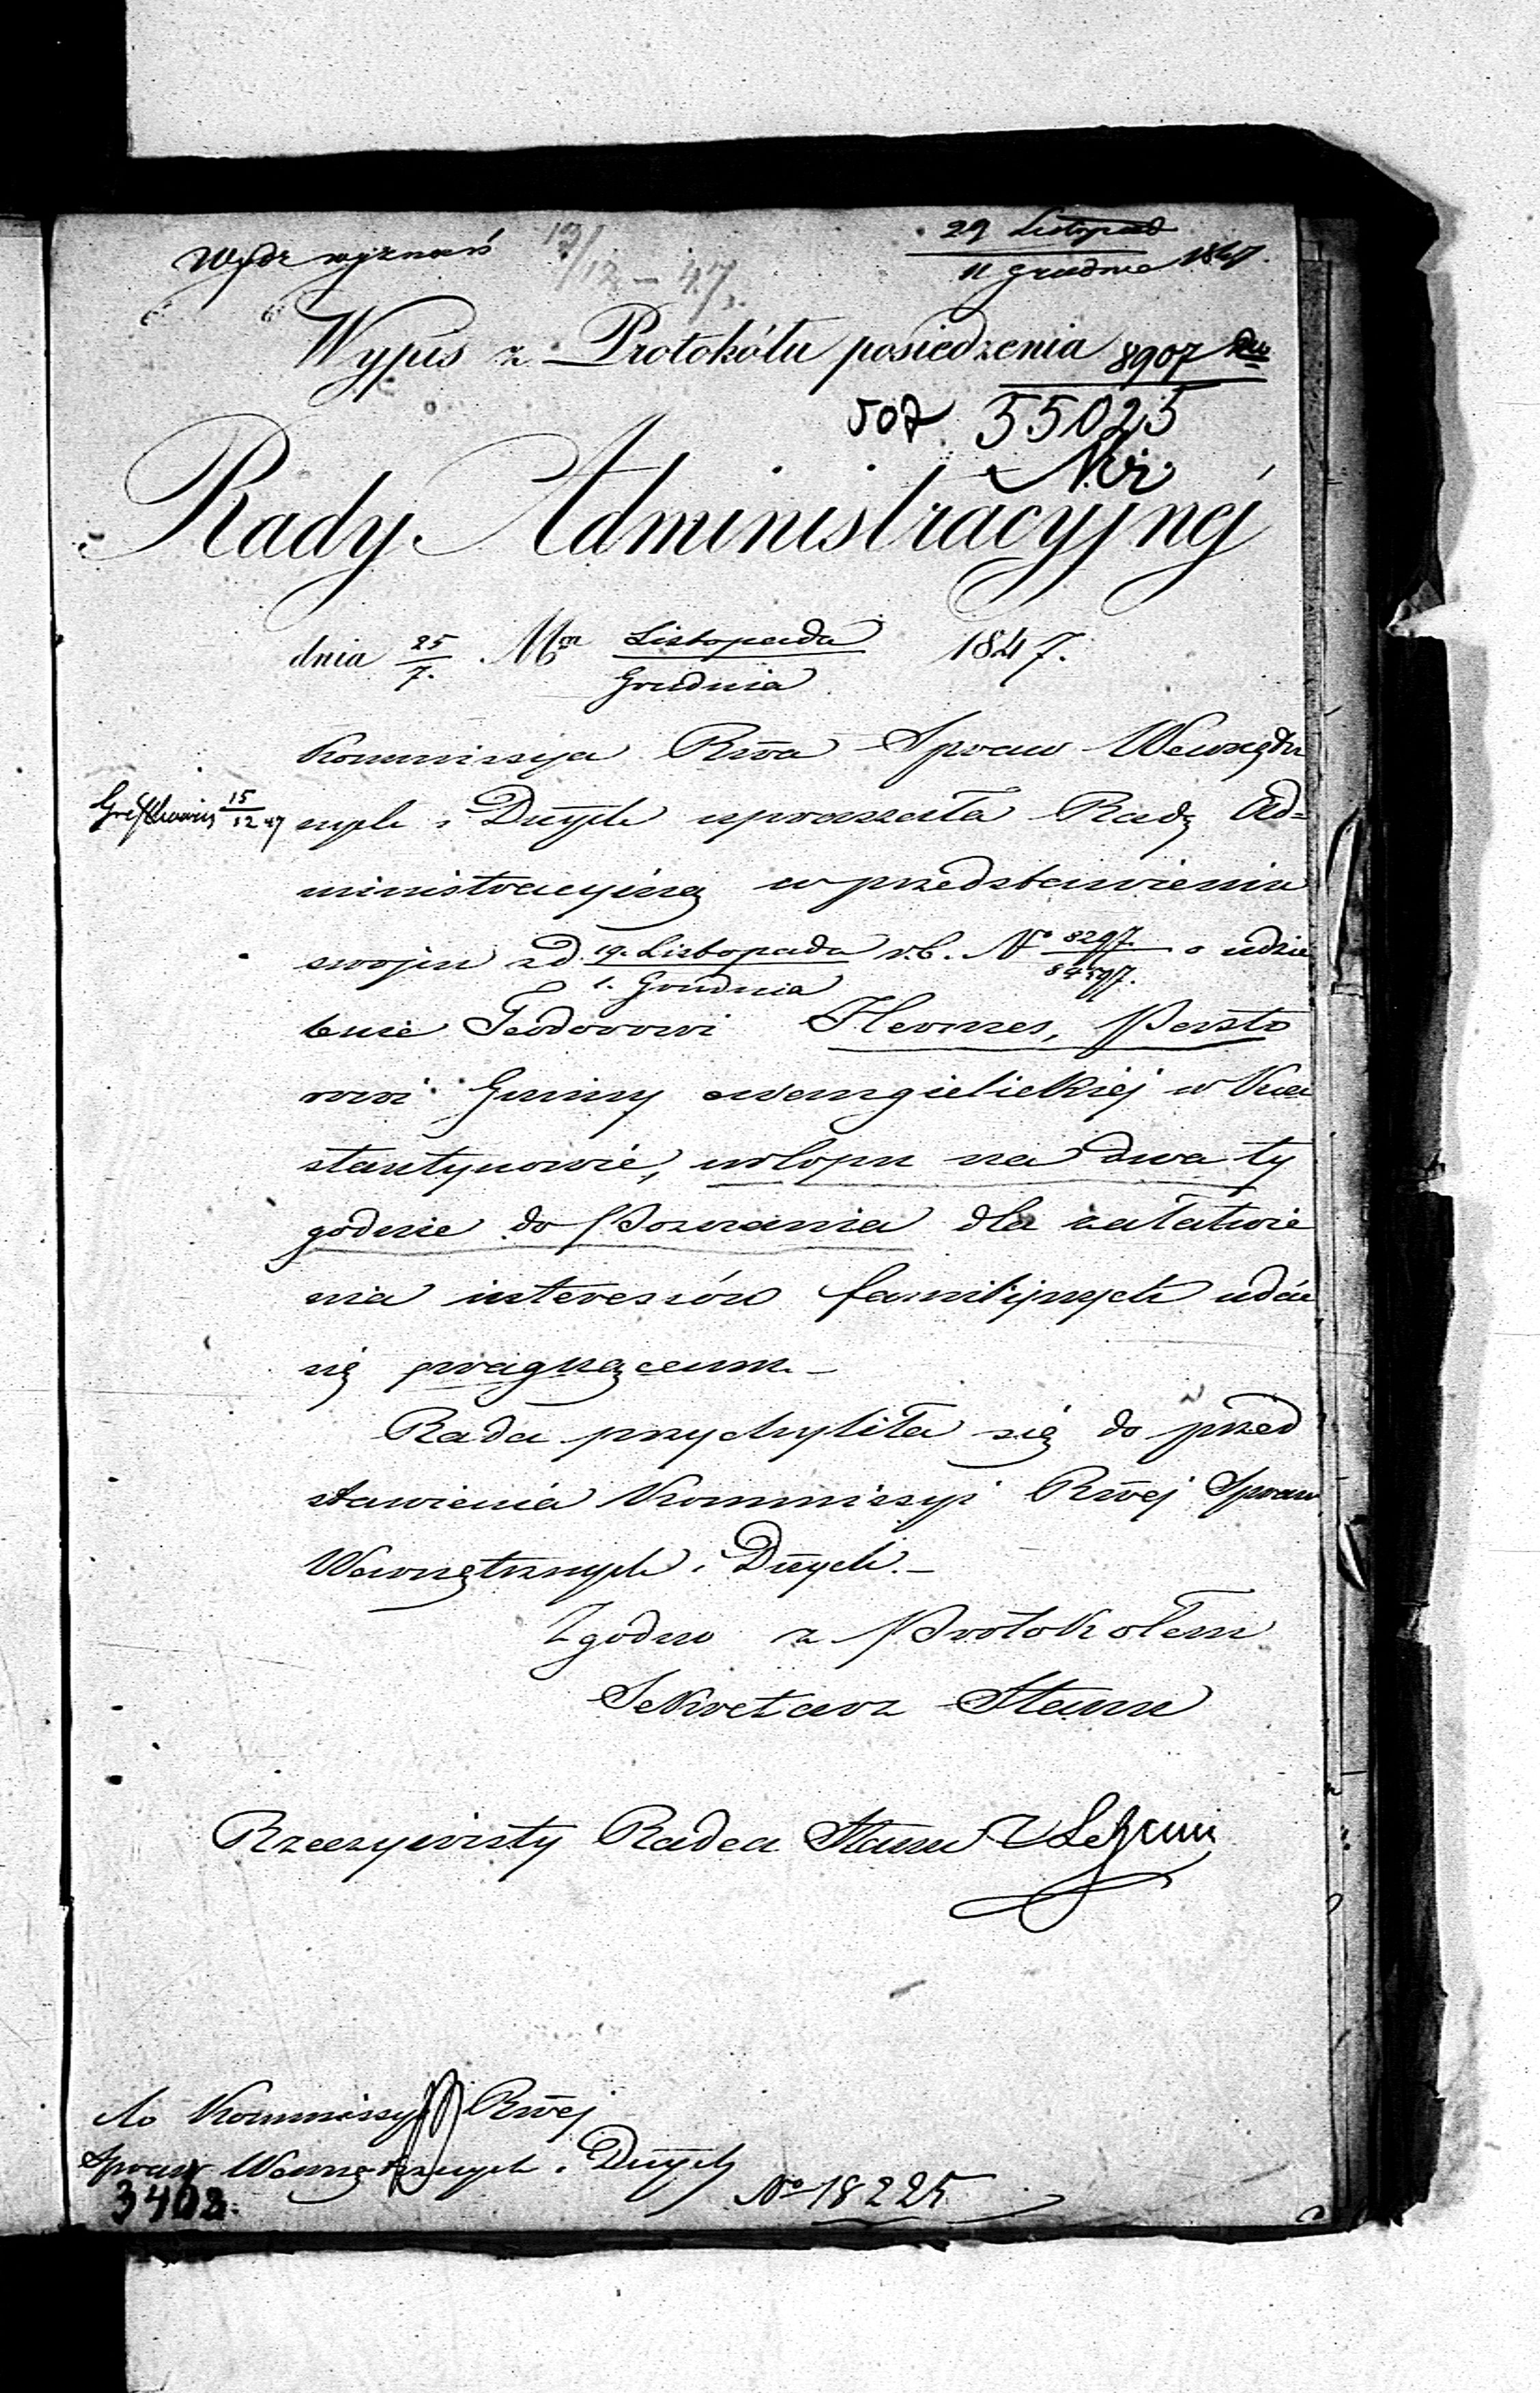 Wydz wyznań
12/12 – 47.
29 Listopad
11 Grudnia 1847.
Wypis z Protokółu posiedzenia 8907
507. 55025
Rady Administracyjnej
dnia 25/7. Mca Listopada/Grudnia 1847.
Kommissya Rwa Spraw Wewnętrz
15/12 47
nych i Duych upraszała Radę Ad=
ministracyjną w przedstawieniu
swojem z d. 19. Listopada/1. Grudnia r.b. No 8297/84597. o udzie
lenie Teodorowi Hermes, Pasto
rowi Gminy ewangielickiej w Kon
stantynowie, urlopu na dwa ty
godnie do Poznania dla załatwie
nia interessów familijnych udać
się pragnącemu. –
Rada przychyliła się do przed
stawienia Kommissyi Rwej Spraw
Wewnętrznych i Duych. –
Zgodno z Protokołem
Sekretarz Stanu
Rzeczywisty Radca Stanu
do Kommissyi Rwej
Spraw Wewnętrznych i Duych
3408.
No 18225